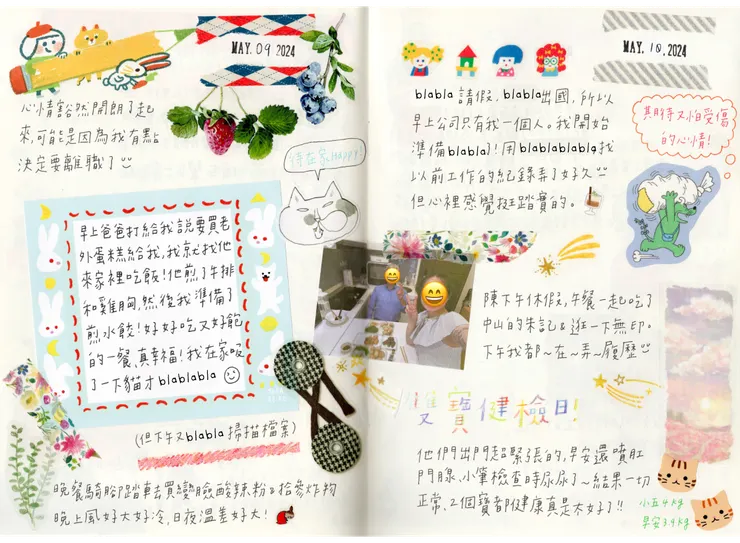 MAY. 09 2024
心情豁然開朗了起
來，可能是因為我有點
決定要離職了
待在家Happy!
早上爸爸打給我說要買老
外蛋糕給我，我就找他
來家裡吃飯！他煎了牛排
和雞胸，然後我準備了
煎水餃！好好吃又好飽
的一餐，真幸福！我在家吸
了一下貓才blablabla
(但下午又blabla掃描檔案)
晚餐騎腳踏車去買變臉酸辣粉&拾參炸物
晚上風好大好冷，日夜溫差好大！
MAY. 10, 2024
blabla請假，blabla出國，所以
早上公司只有我一個人。我開始
準備blabla了！用blablablabla找
以前工作的紀錄弄了好久
但心裡感覺挺踏實的。
期待又怕受傷
的心情！
陳下午休假，午餐一起吃了
中山的朱記&逛一下無印。
下午我都~在~弄~履歷
雙寶健檢日！
他們出門超緊張的，早安還噴肛
門腺，小肇檢查時尿尿了~結果一切
正常，2個寶都健康真是太好了!!
小五4kg
早安3.9kg